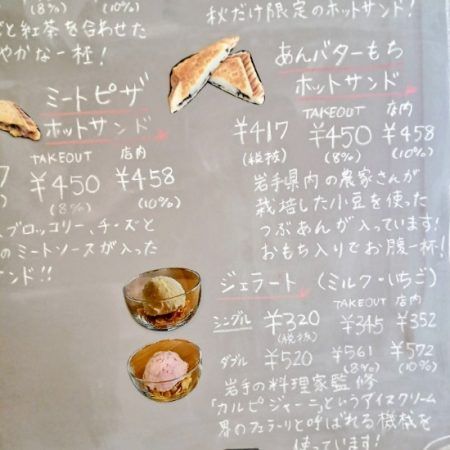 (8%) (10%)
と紅茶を合わせた
やかな一極!
ミートピザ
ホットサンド
TAKEOUT 店内
¥450 ¥458
(8%) (10%)
、ブロッコリー、チーズと
のミートソースが入った
ンド!!
秋だけ限定のホットサンド!
あんバターもち
ホットサンド
TAKEOUT 店内
¥417 ¥450 ¥458
(税抜) (8%) (10%)
岩手県内の農家さんが
栽培した小豆を使った
つぶあんが入っています!
おもち入りでお腹一杯!
ジェラート (ミルク・いちご)
TAKEOUT 店内
シングル ¥320 ¥345 ¥352
(税抜)
ダブル ¥520 ¥561 ¥572
(8%) (10%)
岩手の料理家監修
「カルピジャーニ」というアイスクリーム
界のフェラーリと呼ばれる機械を
使っています!